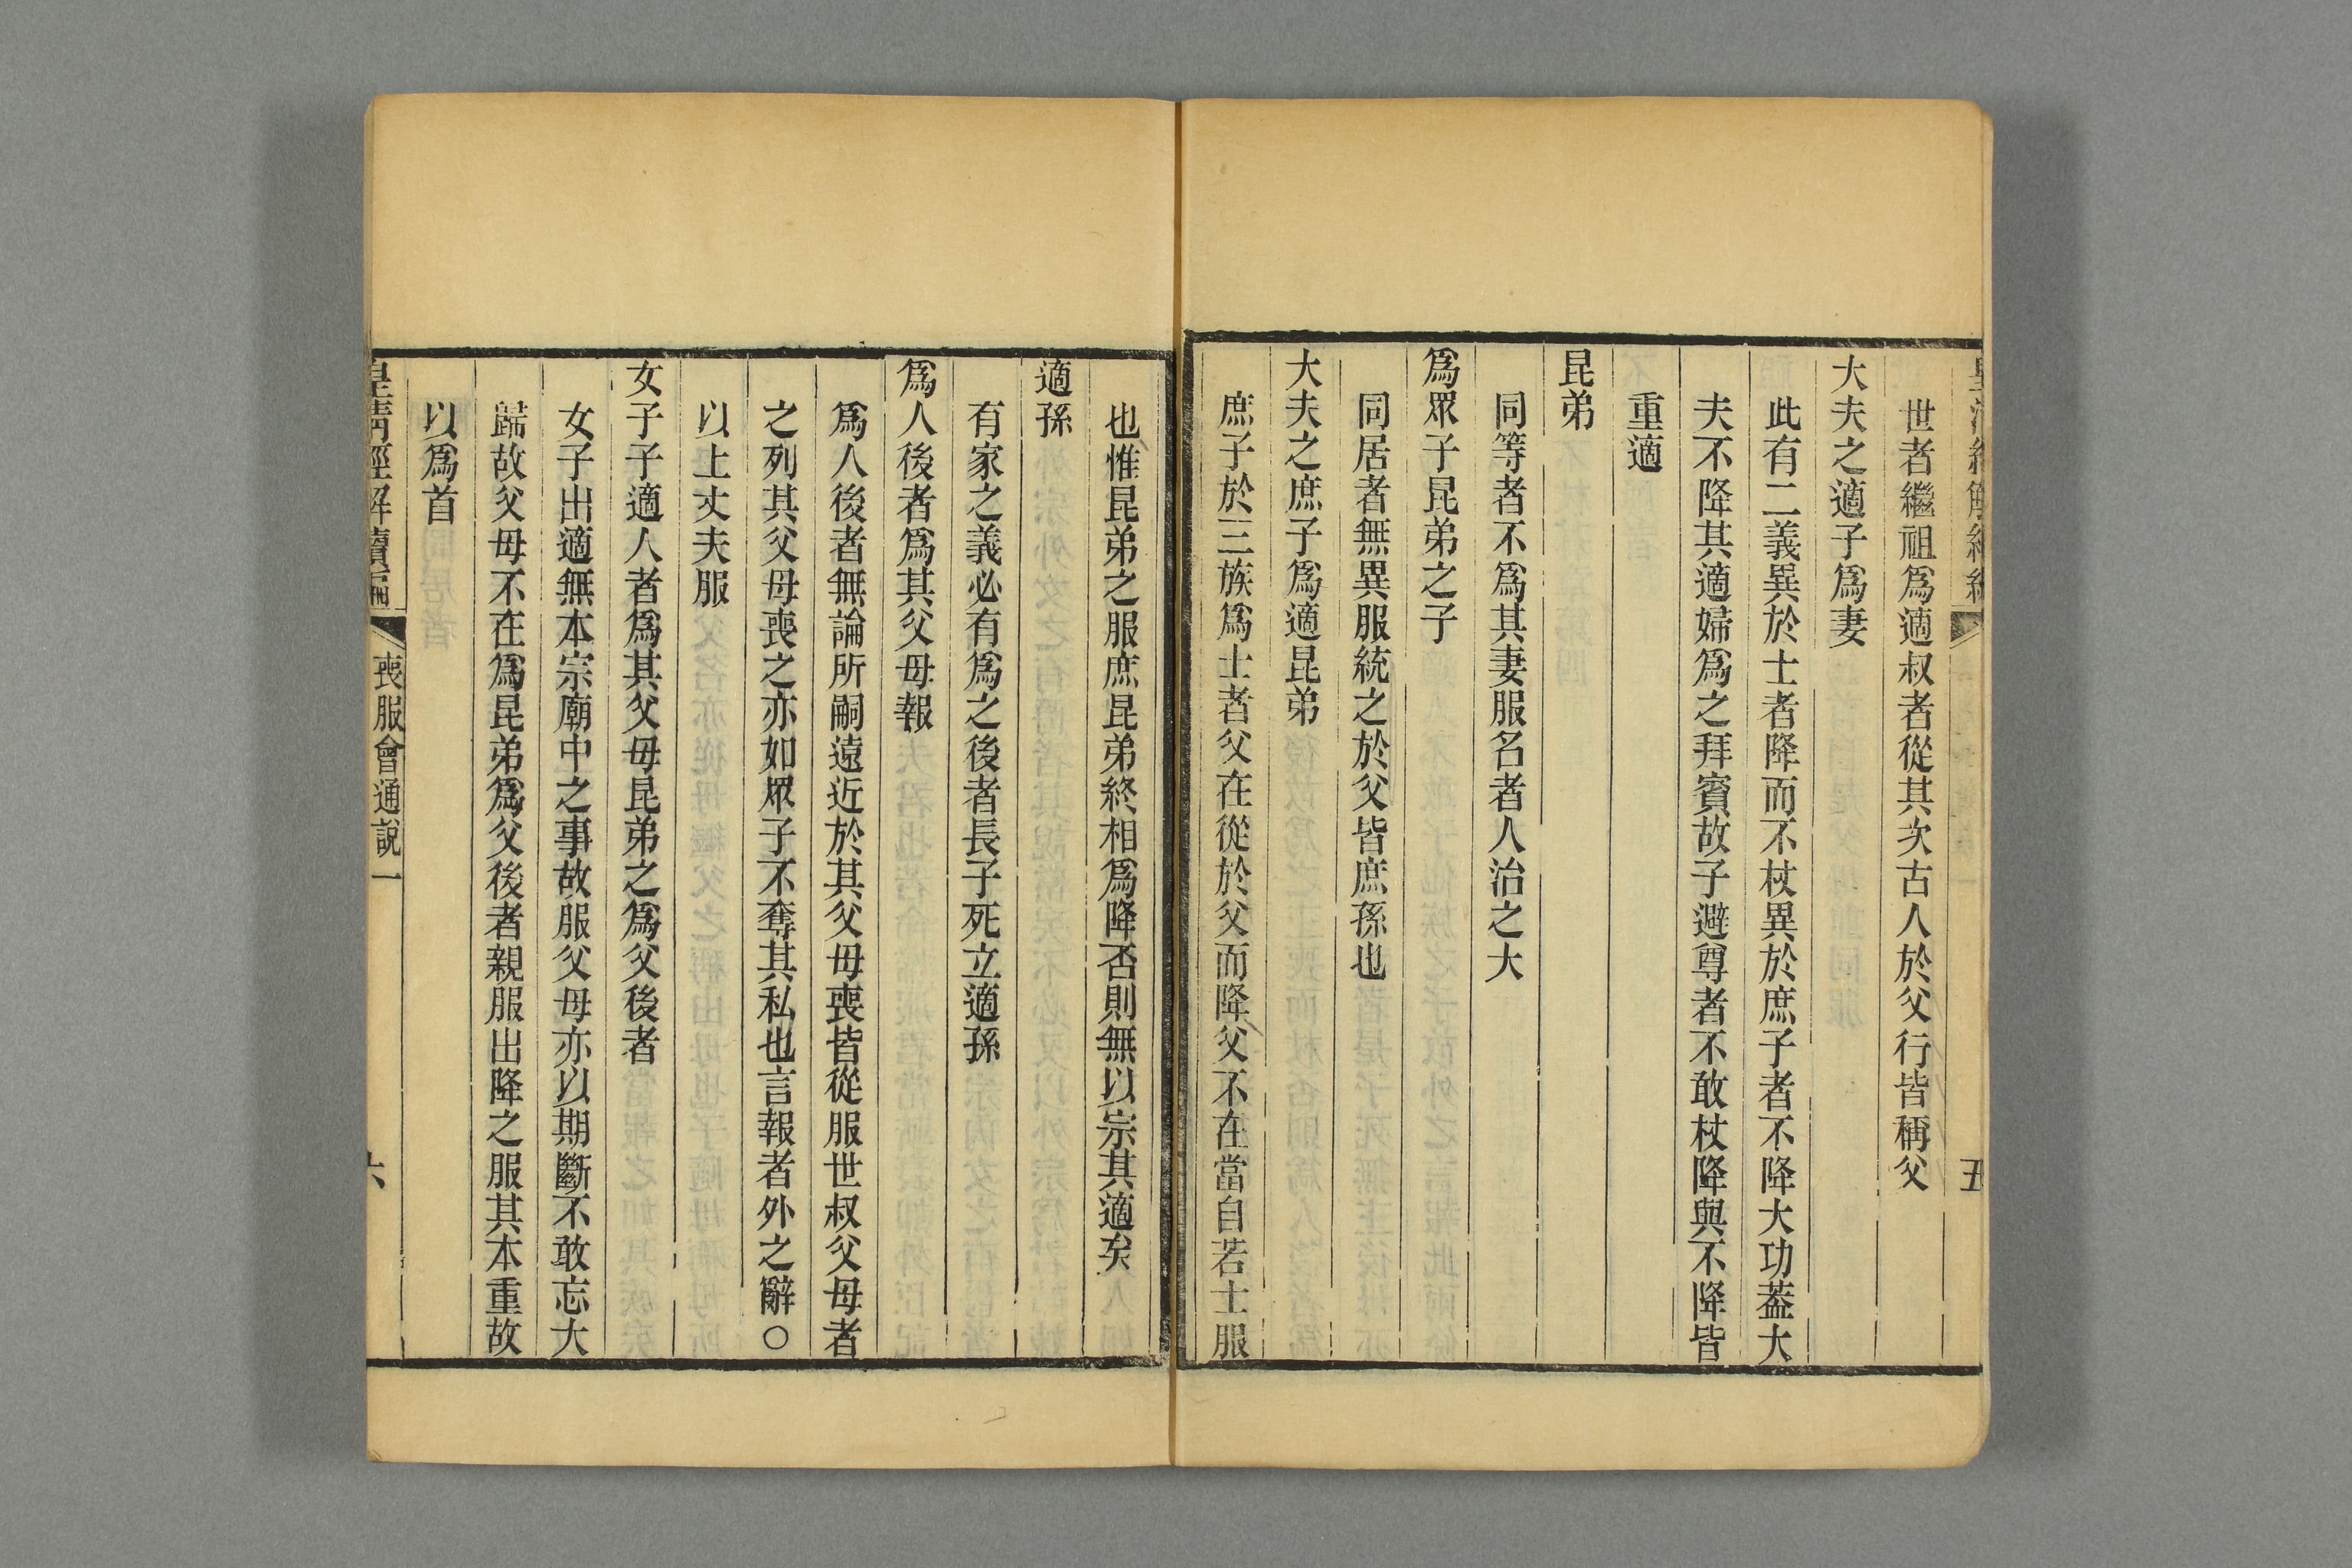 世者繼祖爲適叔者從其次古人於父行皆稱父
大夫之適子爲妻
此有二義異於士者降而不杖異於庶子者不降大功葢大
夫不降其適婦爲之拜賓故子避尊者不敢杖降與不降皆
重適
昆弟
同等者不爲其妻服名者人治之大
爲眾子昆弟之子
同居者無異服統之於父皆庶孫也
大夫之庶子爲適昆弟
庶子於三族爲士者父在從於父而降父不在當自若士服
五
也惟昆弟之服庶昆弟終相爲降否則無以宗其適矣
適孫
有家之義必有爲之後者長子死立適孫
爲人後者爲其父母報
爲人後者無論所嗣遠近於其父母喪皆從服世叔父母者
之列其父母喪之亦如眾子不奪其私也言報者外之辭○
以上丈夫服
女子子適人者爲其父母昆弟之爲父後者
女子出適無本宗廟中之事故服父母亦以期斷不敢忘大
歸故父母不在爲昆弟爲父後者親服出降之服其本重故
以爲首
皇清經解續編
喪服會通說一
六